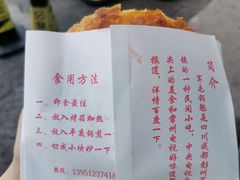 食用方法
一、即食最佳
二、放入烤箱加热
三、放入平底锅煎一下
四、切成小块炒一下
热线：13951237418
简介
军屯锅魁是四川成都彭州
镇的一种民间小吃，中央电视
头上的美食和常州电视好味道
报道，详情百度一下。